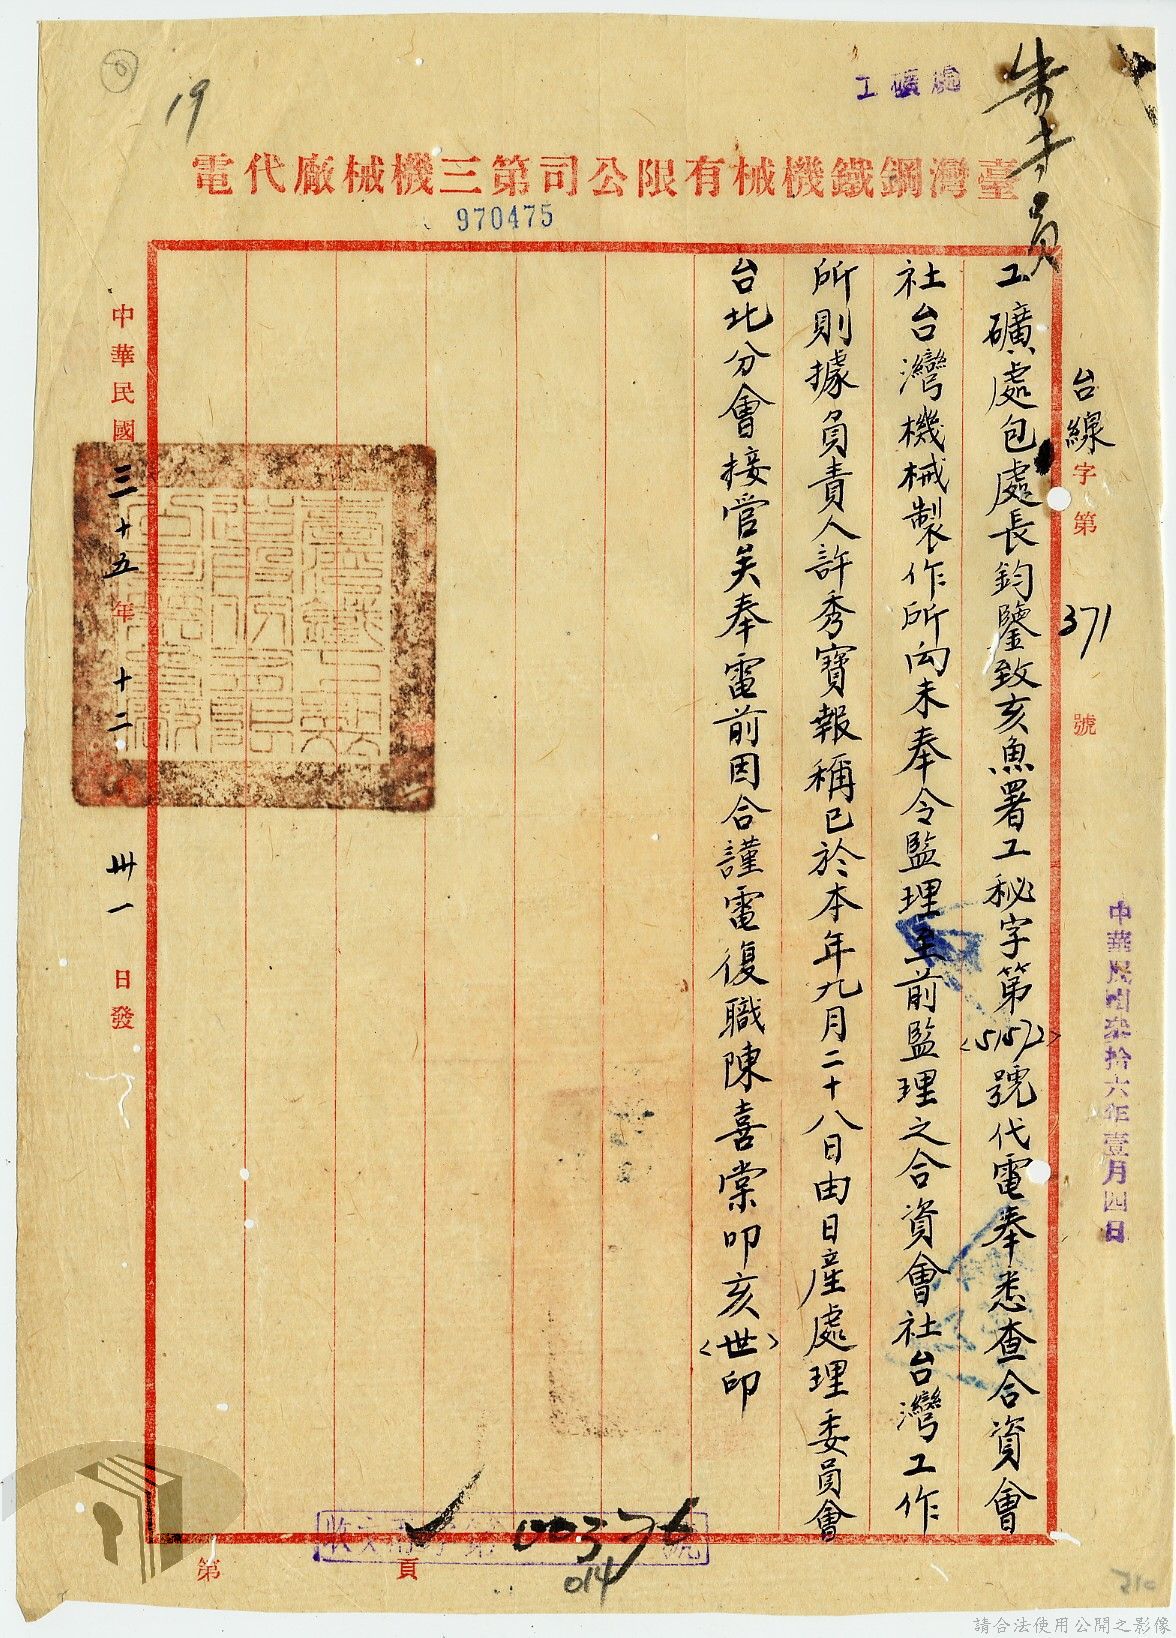 19
工礦處
臺灣鋼鐵機械有限公司第三機械廠代電
970475
台線字第371號
工礦處包處長鈞鑒致亥魚署工秘字第<5152>號代電奉悉查合資會
社台灣機械製作所向未奉令監理至前監理之合資會社台灣工作
所則據負責人許秀寶報稱已於本年九月二十八日由日產處理委員會
台北分會接管矣奉電前因合謹電復職陳喜棠叩亥<世>印
中華民國三十五年十二月卅一日發
中華民國叁拾六年壹月四日
第 頁
00376
014
210
請合法使用公開之影像